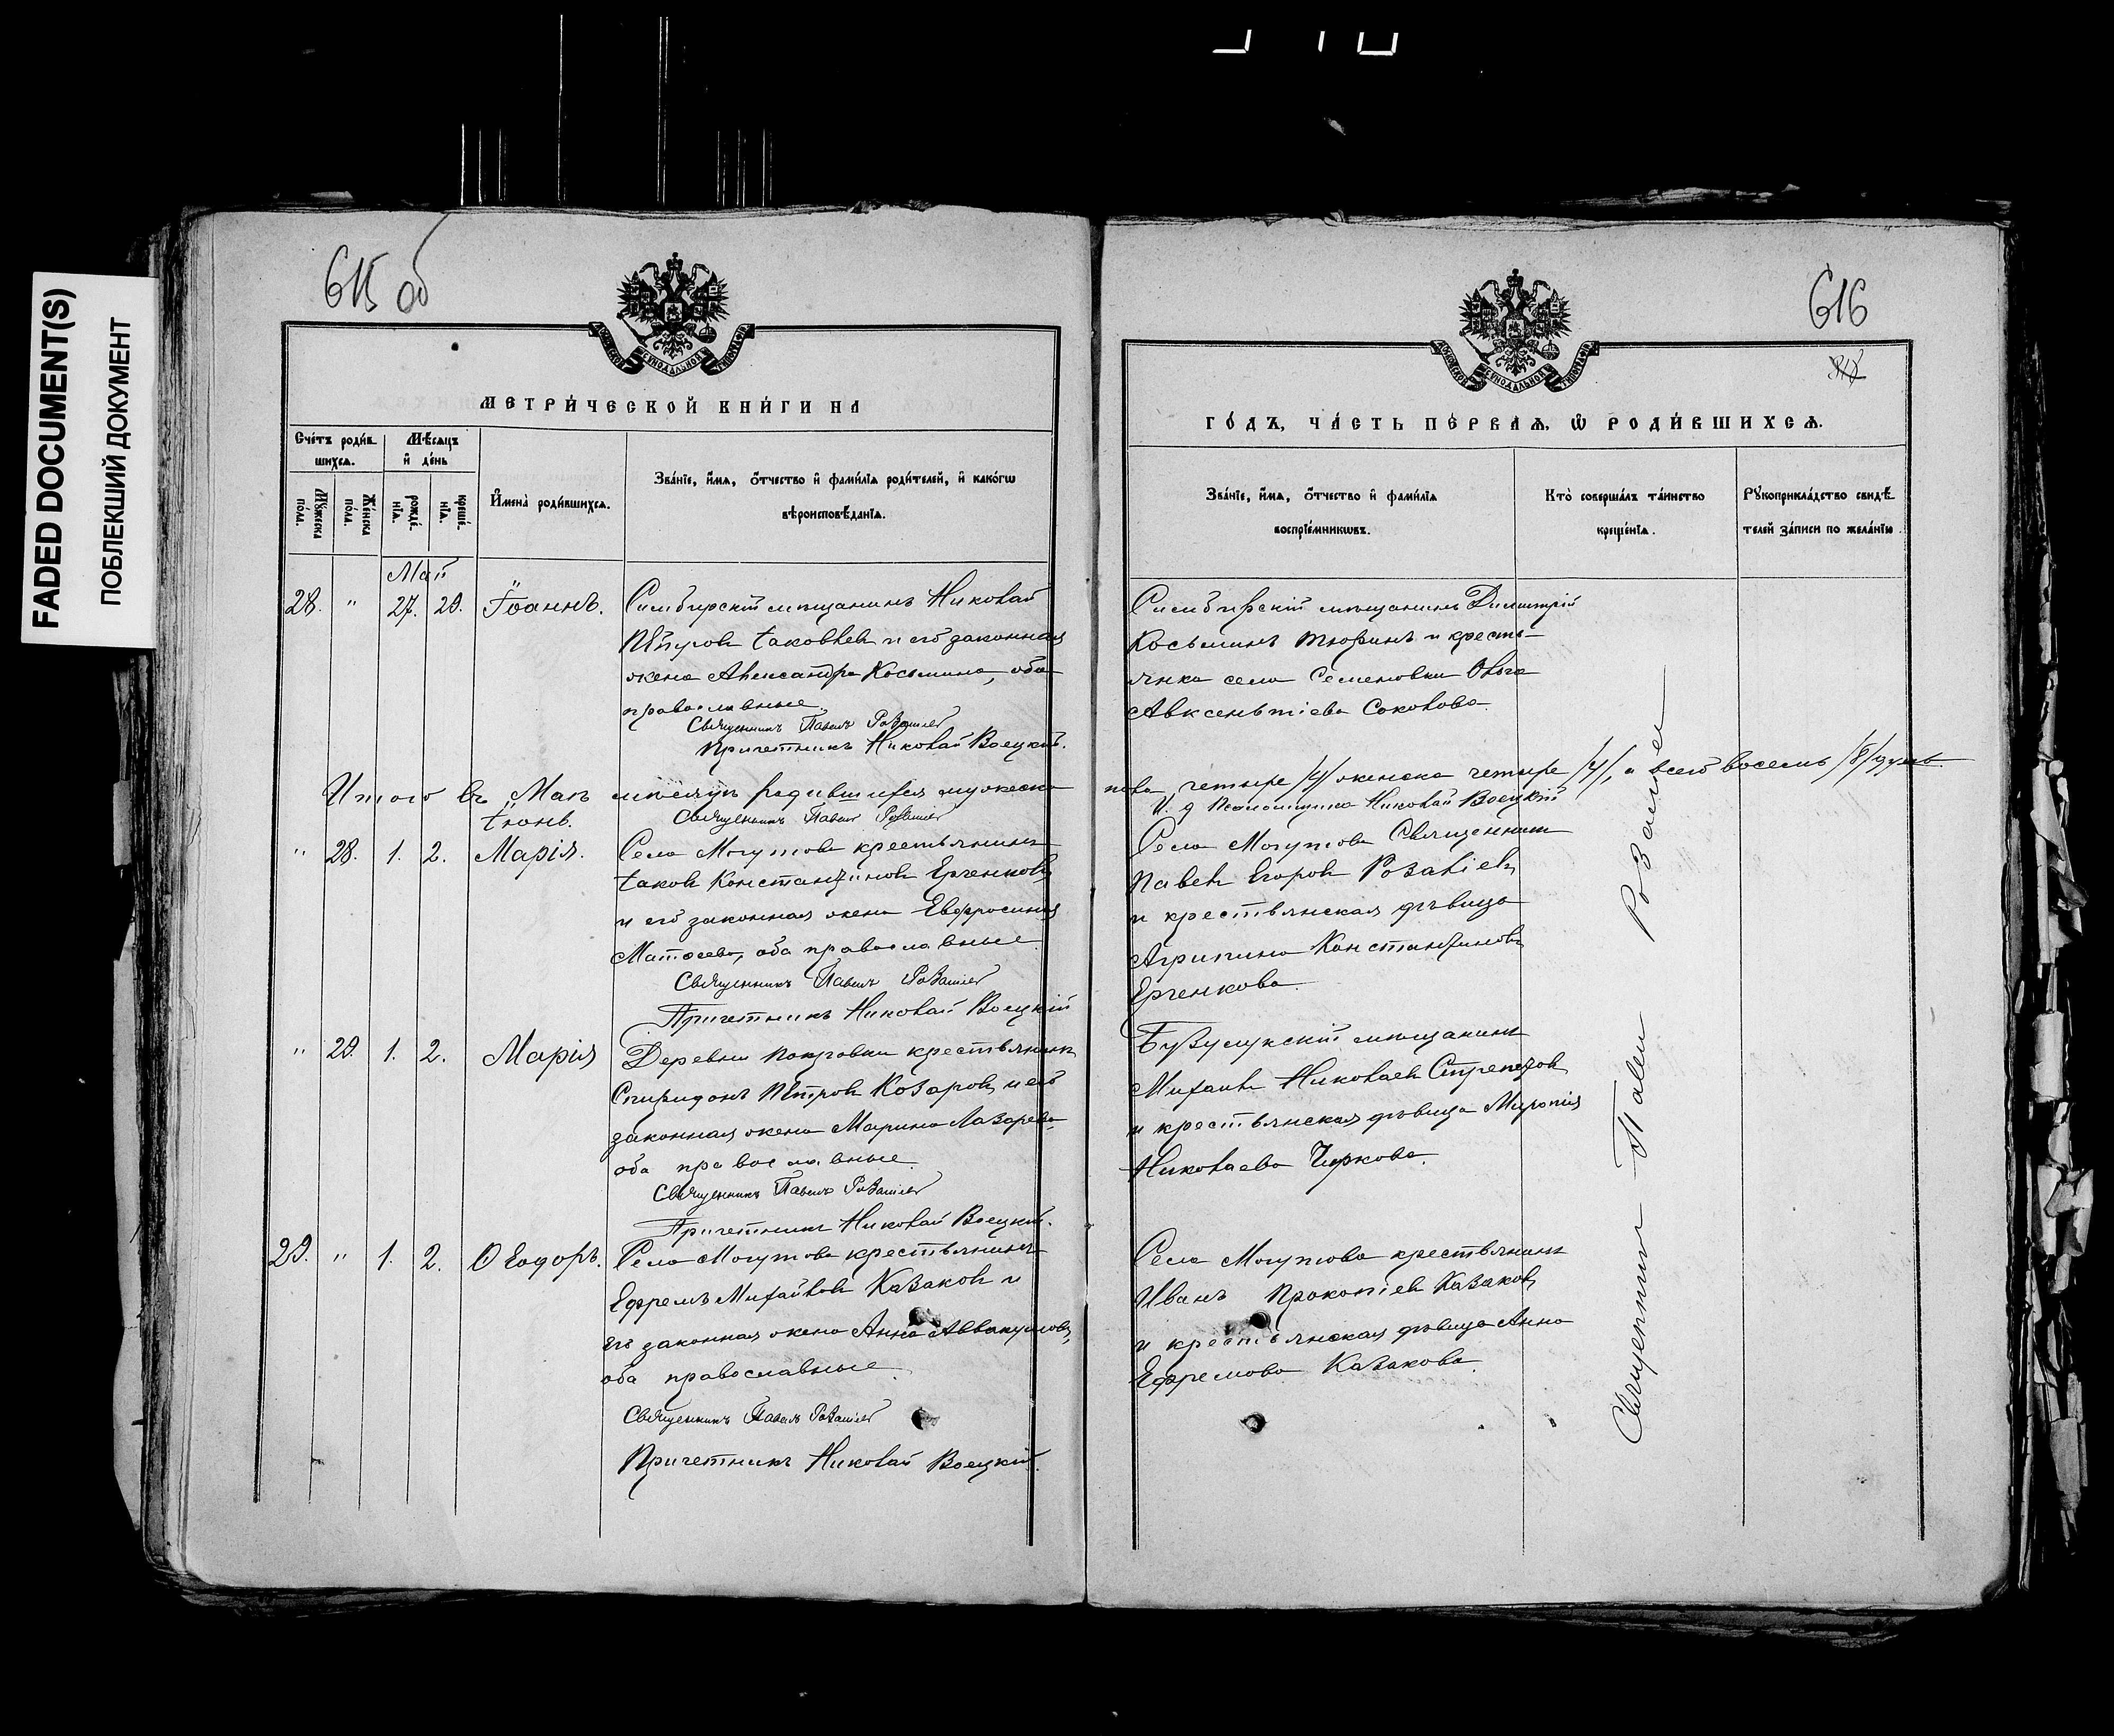 FADED DOCUMENT(S)
ПОБЛЕКШИЙ ДОКУМЕНТ
615 об
МЕТРИ́ЧЕСКОЙ КНИ́ГИ НА
Сче́тъ роди́в
шихсѧ.
Мѣ́сѧцъ
и҆ де́нь
Мꙋ́жеска
по́ла.
Же́нска
по́ла.
рожде́-
нїѧ.
креще́-
нїѧ.
И҆мена̀ роди́вшихсѧ.
Зва́нїе, и҆́мѧ, ѻ҆́тчество и҆ фами́лїѧ роди́телей, и҆ како́гѡ
вѣроисповѣ́данїѧ.
Май
28. " 27. 29. Іоаннъ.
Симбирскій мѣщанинъ Николай
Петровъ Яковлевъ и его законная
жена Александра Косьмина, оба
православные.
Священникъ Павелъ Розалиев
Причетникъ Николай Воецкій.
Итого въ Маѣ мѣсяцѣ родившихся мужеска
Священникъ Павелъ Розалиев
Іюнь.
" 28. 1. 2. Марія.
Села Могутова крестьянинъ
Іаковъ Константиновъ Ерченковъ
и его законная жена Евфросинія
Матѳеева, оба православные.
Священникъ Павелъ Розалиев
Причетникъ Николай Воецкій
" 29. 1. 2. Марія
Деревни Покровки крестьянинъ
Спиридонъ Петровъ Козаровъ и его
законная жена Марина Лазарева
оба православные.
Священникъ Павелъ Розалиев
Причетникъ Николай Воецкій.
29. " 1. 2. Ѳеодоръ.
Села Могутова крестьянинъ
Ефремъ Михайловъ Казаковъ и
его законная жена Анна Аввакумова,
оба православные.
Священникъ Павелъ Розалиев
Причетникъ Николай Воецкій.
616
ГО́ДЪ, ЧА́СТЬ ПЕ́РВАѦ, Ѡ҆ РОДИ́ВШИХСѦ.
Зва́нїе, и҆́мѧ, ѻ҆́тчество и҆ фами́лїѧ
воспрїе́мникѡвъ.
Кто̀ соверша́лъ та́инство
креще́нїѧ.
Рꙋкоприкла́дство свидѣ́-
телей за́писи по жела́нїю.
Симбирскій мѣщанинъ Димитрій
Косьминъ Тюринъ и кресть-
янка села Семеновки Ольга
Авксентіева Соколова.
пола четыре /4/ женска четыре /4/, а всего восемь /8/ душъ.
И. д. Псаломщика Николай Воецкій
Села Могутова Священникъ
Павелъ Егоровъ Розаліевъ
и крестьянская дѣвица
Агрипина Константинова
Ерченкова.
Бузулукскій мѣщанинъ
Михаилъ Николаевъ
и крестьянская дѣвица Миропія
Николаева Чиркова.
Села Могутова крестьянинъ
Иванъ Прокопіевъ Казаковъ
и крестьянская дѣвица Анна
Ефремова Казакова.
Священникъ Павелъ Розалиев